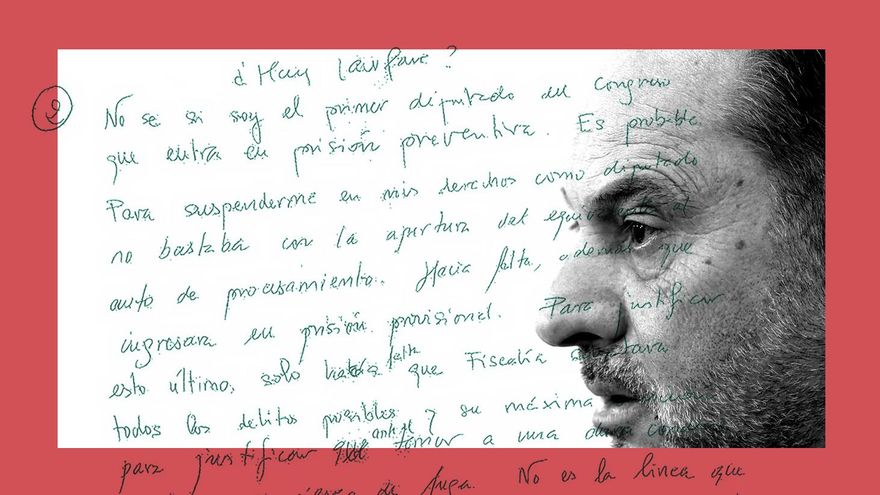 ¿Hay lawfare?
2
No se si soy el primer diputado del Congreso
que entra en prisión preventiva. Es probable
Para suspenderme en mis derechos como diputado
no bastaba con la apertura del equivalente al
auto de procesamiento. Hacía falta, además que
ingresara en prisión provisional. Para justificar
esto último, solo hacía falta que Fiscalía
todos los delitos posibles y su máxima
para justificar ante el temor a una dura
de fuga. No es la línea que